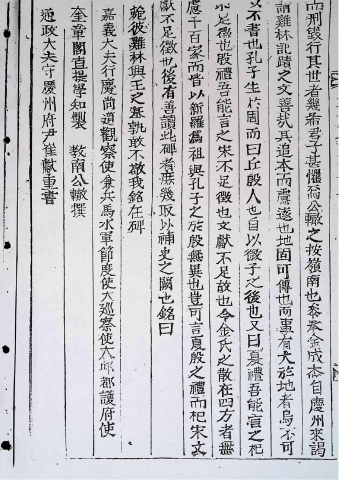 而刑毀行其世者幾希君子甚懼焉公轍之按嶺南也黍米金成杰自慶州來謁
請雞林訖蹟之文善哉其追本而慮遠也地固可傳也而事有大於地者烏不可
以不書也孔子生於周而曰丘殷人也自以微子之後也又曰夏禮吾能言之杞
不足徵也殷禮吾能言之宋不足徵也文獻不足故也今金氏之散在四方者無
慮千百家而皆以新羅爲祖與孔子之於殷無異也豈可言夏殷之禮而杞宋文
獻不足徵也後有善讀此碑者庶幾取以補史之闕也銘曰
菀彼雞林興王之基孰敢不敬我銘在碑
嘉義大夫行慶尙道觀察使兼兵馬水軍節度使大巡察使大邱都護府使
奎章閣直提學知製 敎南公轍撰
通政大夫守慶州府尹崔獻重書